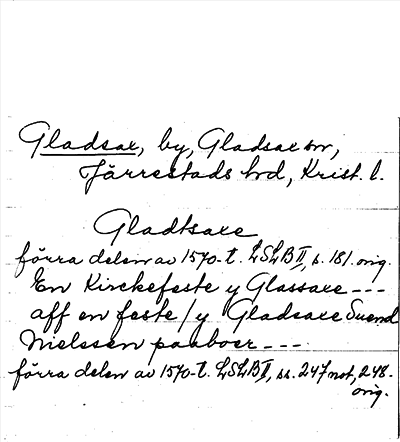 Gladsax, by, Gladsax sn,
Järrestads hd, Krist. l.
Gladtsaxe
förra delen av 1570-t. LSLB II, s. 181. orig.
En Kirckefeste y Glassaxe ---
aff en feste / y Gladsaxe Suend
Nielssen paaboer ---
förra delen av 1570-t. LSLB II, ss. 247 not, 248.
orig.